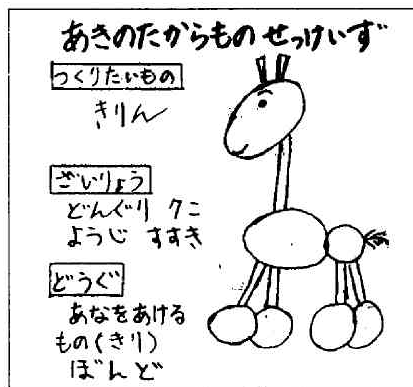 あきのたからもの せっけいず
つくりたいもの
きりん
ざいりょう
どんぐり 7こ
ようじ すすき
どうぐ
あなをあける
もの(きり)
ぼんど